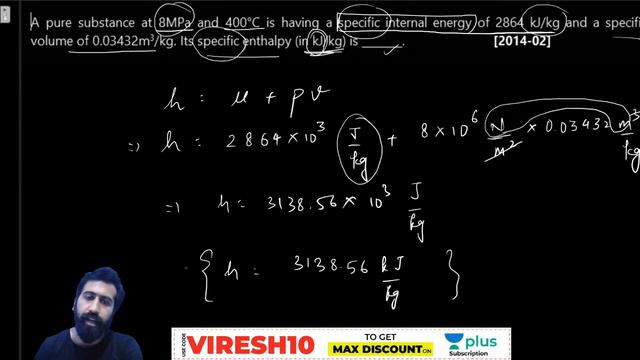 A pure substance at 8MPa and 400°C is having a specific internal energy of 2864 kJ/kg and a specifi
volume of 0.03432m³/kg. Its specific enthalpy (in kJ/kg) is ______ [2014-02]
h = u + p v
⇒ h = 2864 × 10³ J/kg + 8 × 10⁶ N/m² × 0.03432 m³/kg
⇒ h = 3138.56 × 10³ J/kg
{ h = 3138.56 kJ/kg }
USE CODE
VIRESH10
TO GET
MAX DISCOUNT ON
plus
Subscription